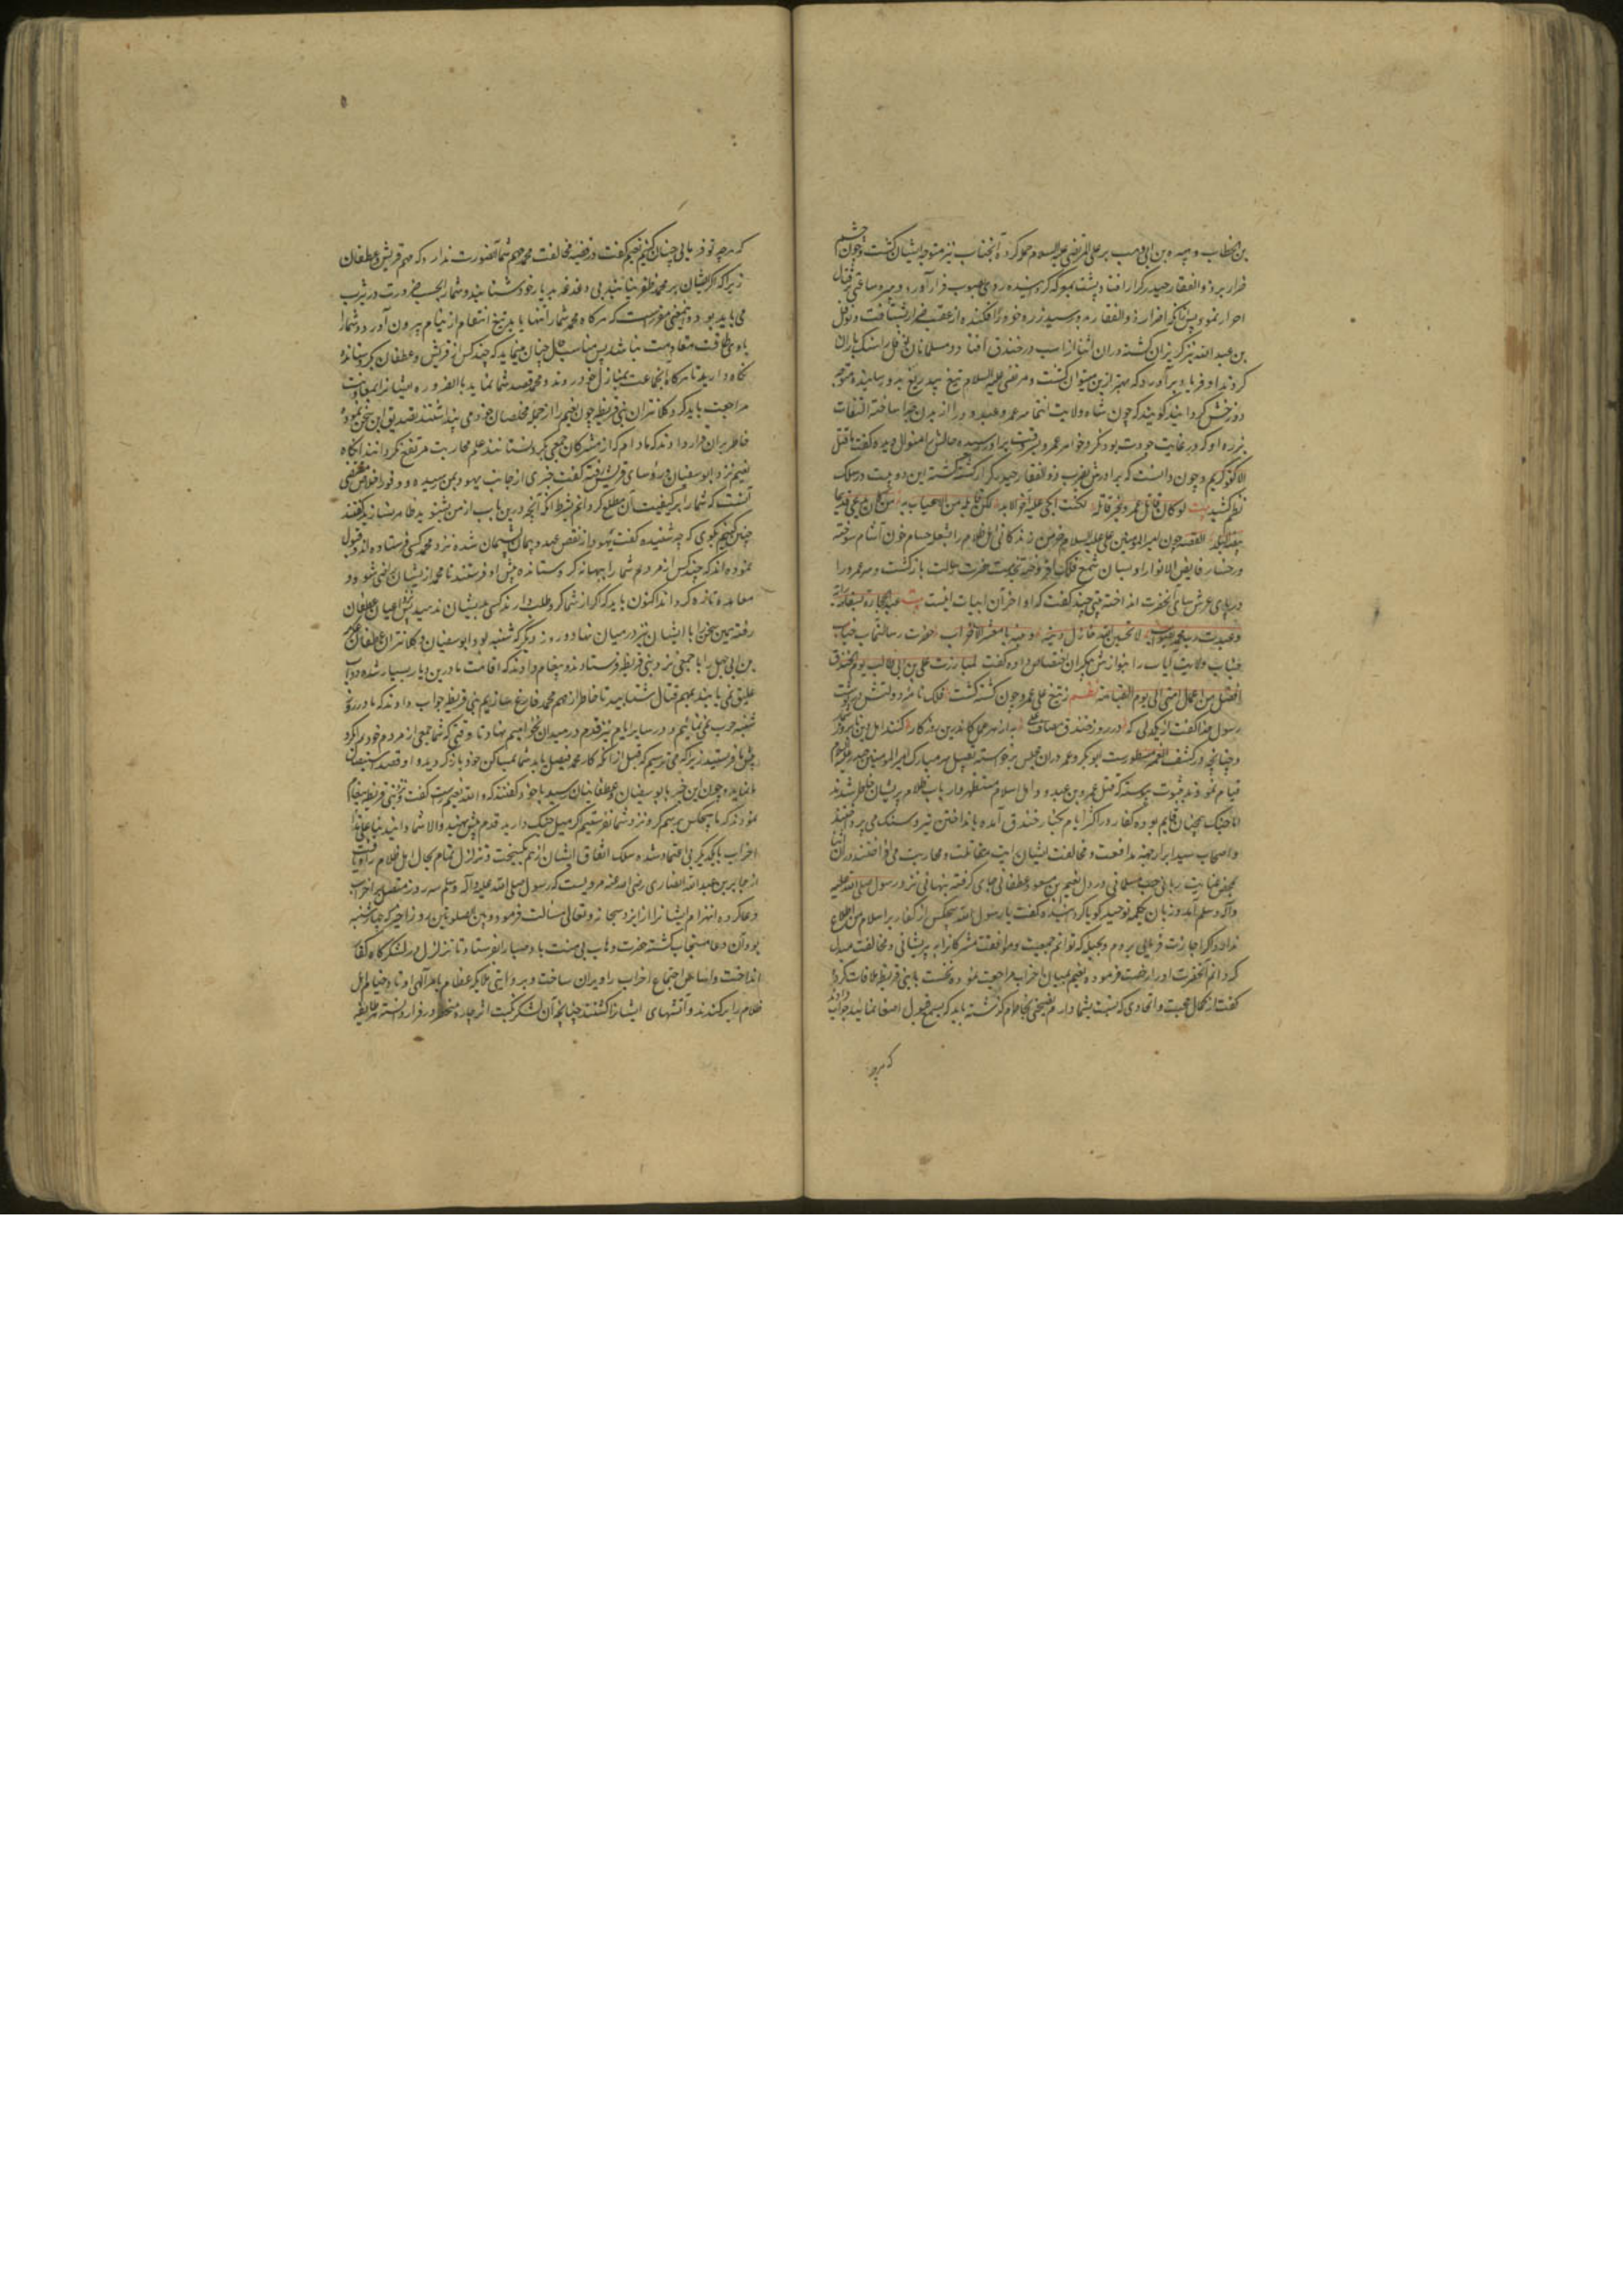 بن الخطاب و هبیره بن ابی وهب بر علی المرتضی علیه السلام حمله کردند آنجناب نیز متوجه ایشان گشت و چون چشم
ضرار بر ذو الفقار حیدر کرار افتاد پشت بمعرکه گردانیده روی بصوب فرار آورد و هبیره ساعتی بر قتال
اصرار نمود پس از آنکه اضرار ذو الفقار بدو رسید زره خود را افکنده از عقب ضرار شتافت و نوفل
بن عبد الله نیز گریزان گشته در آن اثنا از اسب در خندق افتاد و مسلمانان نوفل را سنگ باران
کردند او فریاد بر آورد که بهتر ازین میتوان کشت و مرتضی علیه السلام تیغ بیدریغ بدو رسانیده متوجه
دوزخش گردانید گویند که چون شاه ولایت انتما سر عمرو عبدود را از بدن جدا ساخته التفات
بزره او که در غایت جودت بود نکرد خواهر عمرو بر سر برادر رسیده حالش بدان منوال دیده گفت ما قتله
الا کفو کریم و چون دانست که برادرش بضرب ذو الفقار حیدر کرار کشته گشته این دو بیت در سلک
نظم کشید بیت لو کان قاتل عمرو غیر قاتله لکنت ابکی علیه آخر الابد لکن قاتله من لا یعاب به من کان یدعی قدیما
بیضة البلد القصه چون امیر المومنین علی علیه السلام خرمن زندگانی اهل ظلام را بشعله حسام خون آشام سوخته
و رخسار فایض الانوار او بسان شمع فلک افروخته بخدمت حضرت رسالت بازگشت و سر عمرو را
در پای عرش سای آنحضرت انداخته بیتی چند گفت که اول و آخر آن ابیات اینست بیت عبد الحجارة بسفاهة رایه
و عبدت رب محمد بصواب لا تحسبن الله خاذل دینه و نبیه یا معشر الاحزاب حضرت رسالتماب جناب
ولایت ایاب را بنوازش بیکران اختصاص داده گفت لمبارزت علی بن ابی طالب یوم الخندق
افضل من اعمال امتی الی یوم القیامة نظم ز تیغ علی عمرو چون کشته گشت فلک نامه دولتش در نوشت
رسول خدا گفت از یکدلی که در روز خندق مصاف علی به از هر عمل کاندرین روزگار کنند اهل دین تا بروز شمار
و چنانچه در کشف الغمه مسطورست ابو بکر و عمر در آن مجلس برخواسته بتقبیل سر مبارک امیر المومنین حیدر علیه السلام
قیام نمودند بثبوت پیوسته که قتل عمرو بن عبدود اهل اسلام مستظهر و ارباب ظلام پریشان خاطر شدند
اما جنگ همچنان قایم بوده کفار در اکثر ایام بکنار خندق آمده بانداختن تیر و سنگ می پرداختند
و اصحاب سید ابرار بجهت مدافعت و مخالفت ایشان رایت مقاتلت و محاربت می افراختند در آن اثنا
بمحض عنایت ربانی حب مسلمانی در دل نعیم بن مسعود غطفانی جای گرفته پنهانی نزد رسول صلی الله علیه
و آله و سلم آمد و زبان بکلمه توحید گویا گردانیده گفت یا رسول الله هیچکس از کفار بر اسلام من اطلاع
ندارد و اگر اجازت فرمایی بروم و بحیله که توانم جمعیت و موافقت مشرکان را به پریشانی و مخالفت مبدل
گردانم آنحضرت او را رخصت فرموده نعیم بمیان احزاب مراجعت نموده نخست با بنی قریظه ملاقات کرد و
گفت از کمال محبت و اتحادی که نسبت بشما دارم نصیحتی بخاطرم گذشته باید که بسمع قبول اصغا نمائید جواب دادند
که هرچه
که هرچه تو فرمایی چنان کنیم نعیم گفت در قضیه مخالفت محمد مهم شما آنصورت ندارد که مهم قریش و غطفان
زیرا که اگر ایشان بر محمد ظفر نیابند بی دغدغه بدیار خود شتابند و شما را بحسب ضرورت در یثرب
می باید بود و بتعین مقررست که هر گاه محمد شما را تنها یابد تیغ انتقام از نیام بیرون آورد و شما را
با وی طاقت مقاومت نباشد پس مناسب حال چنان مینماید که چند کس از قریش و غطفان گرو بستانید
نگاه دارید تا هر گاه آنجماعت بمنازل خود روند و محمد قصد شما نماید بالضروره ایشان را بمعاونت
مراجعت باید کرد کلانتران بنی قریظه چون نعیم را از جمله مخلصان خود می پنداشتند تصدیق این سخن نموده
خاطر بر آن قرار دادند که مادام که از مشرکان جمعی گرو نستانند علم محاربت مرتفع نگردانند آنگاه
نعیم نزد ابو سفیان و رؤسای قریش رفته گفت خبری از جانب یهود بمن رسیده و وفور اخلاص مقتضی
آنست که شما را بر کیفیت آن مطلع گردانم بشرط آنکه آنچه درین باب از من بشنوید ظاهر نسازید گفتند
چنین کنیم بگوی که چه شنیده گفت یهود از نقض عهد و پیمان پشیمان شده نزد محمد کسی فرستاده اند و قبول
نموده اند که چند کس از مردم شما را ببهانه گرو ستانده پیش او فرستند تا محمد از ایشان راضی شود و
معاهده تازه کردند اکنون باید که اگر از شما گرو طلب دارند کسی بایشان ندهید پس نزد اعیان غطفان
رفته همین سخن را با ایشان نیز در میان نهاد و روز دیگر که شنبه بود ابو سفیان و کلانتران غطفان عکرمه
بن ابی جهل را با جمعی نزد بنی قریظه فرستادند و پیغام دادند که اقامت ما درین دیار بسیار شده دواب
علیق نمی یابند بمهم قتال شتابید تا خاطر از مهم محمد فارغ سازیم بنی قریظه جواب دادند که ما در روز
شنبه حرب نمی نمائیم و در سایر ایام نیز قدم در میدان نخواهیم نهاد تا وقتی که شما جمعی از مردم خود برسم گرو
پیش ما فرستید زیرا که می ترسیم که قبل از آنکه کار محمد فیصل یابد شما بمساکن خود باز گردید و او قصد استیصال
ما نماید و چون این خبر بابو سفیان و غطفانیان رسید با خود گفتند که و الله نعیم راست گفت و نزد بنی قریظه پیغام
نمودند که ما هیچکس برسم گرو نزد شما نفرستیم اگر میل جنگ دارید قدم پیش نهید و الا شما دانید بنا علی هذا
احزاب بایکدیگر بی اعتماد شده سلک اتفاق ایشان از هم گسیخت و تزلزل تمام بحال اهل ظلام راه یافت
از جابر بن عبد الله انصاری رضی الله عنه مرویست که رسول صلی الله علیه و آله و سلم سه روز متصل بر احزاب
دعا کرده انهزام ایشان را از ایزد سبحانه و تعالی مسالت فرمود و بین الصلوتین روز اخیر که چهارشنبه
بود آن دعا مستجاب گشته حضرت وهاب بی منت باد صبا را بفرستاد تا تزلزل در لشکرگاه کفار
انداخت و اساس اجتماع احزاب را ویران ساخت و بروایتی ملایکه عظام بامر آلهی اوتاد خیام اهل
ظلام را برکندند و آتشهای ایشان را کشتند چنانچه آن لشکر نکبت اثر چاره منحصر در فرار دانسته هر طایفه